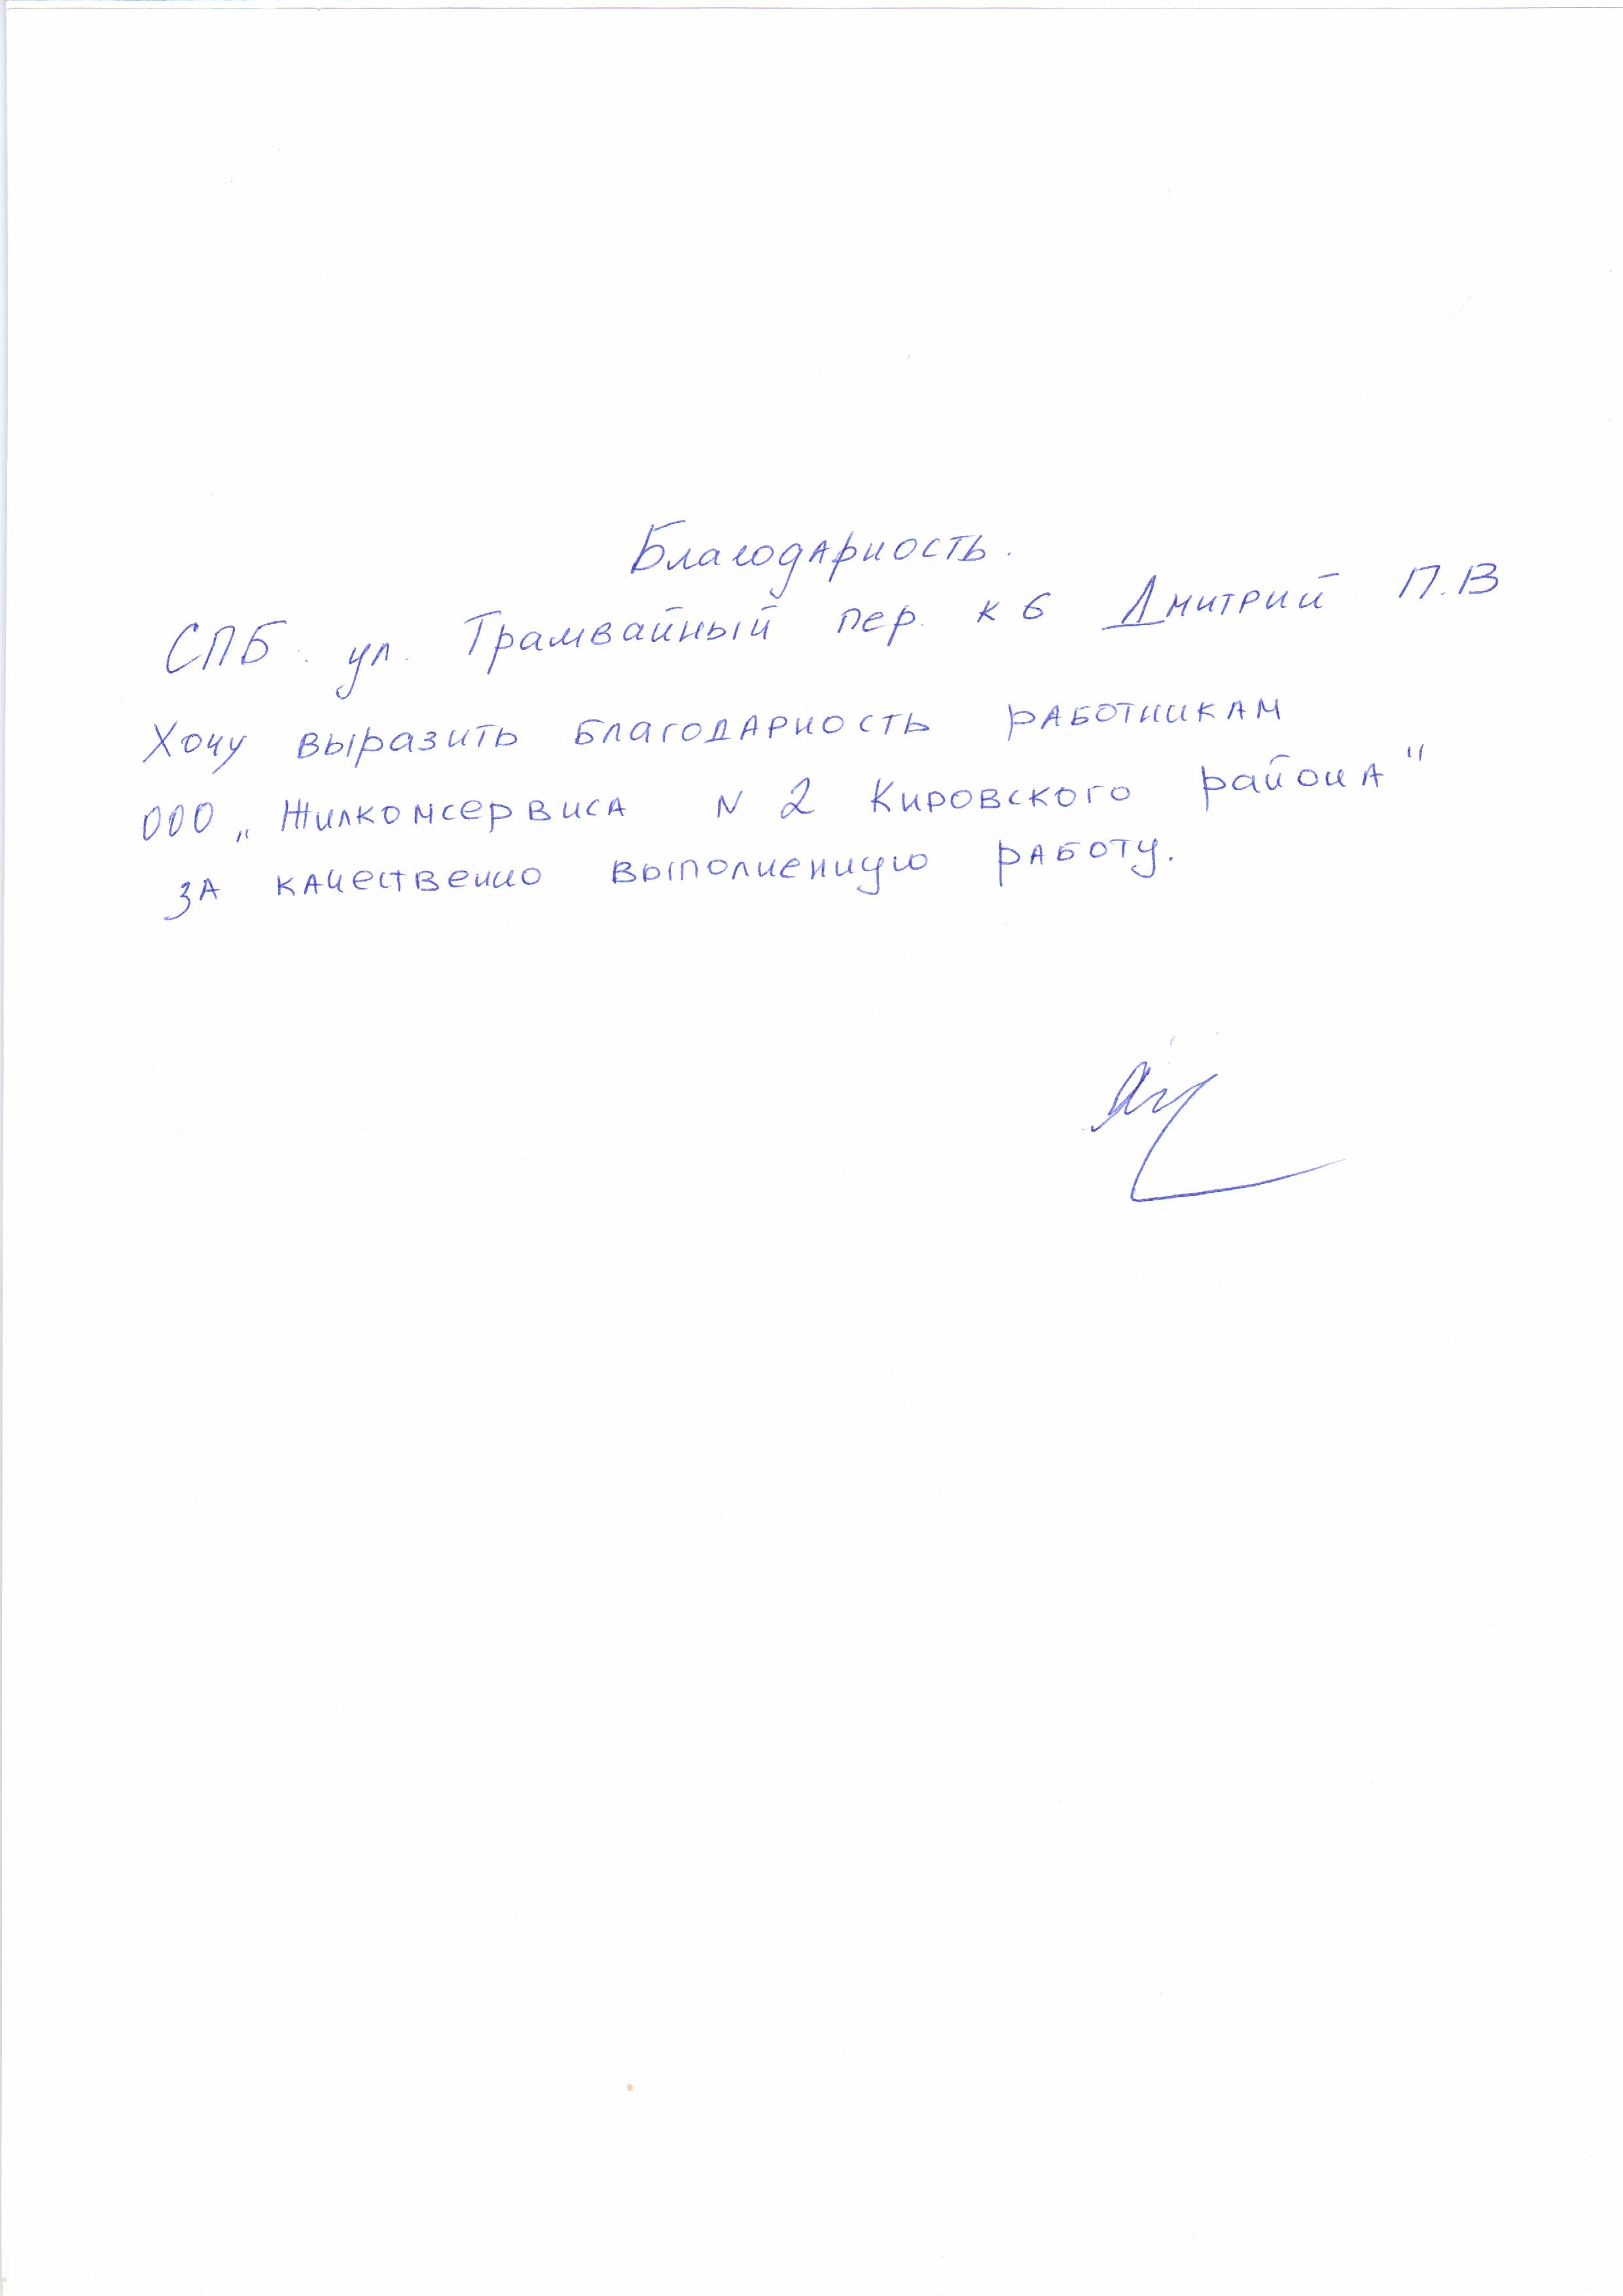 Благодарность.
СПБ. ул. Трамвайный пер. к 6 Дмитрий П.В
Хочу выразить благодарность работникам
ООО „Жилкомсервиса N 2 Кировского района"
за качественно выполненную работу.